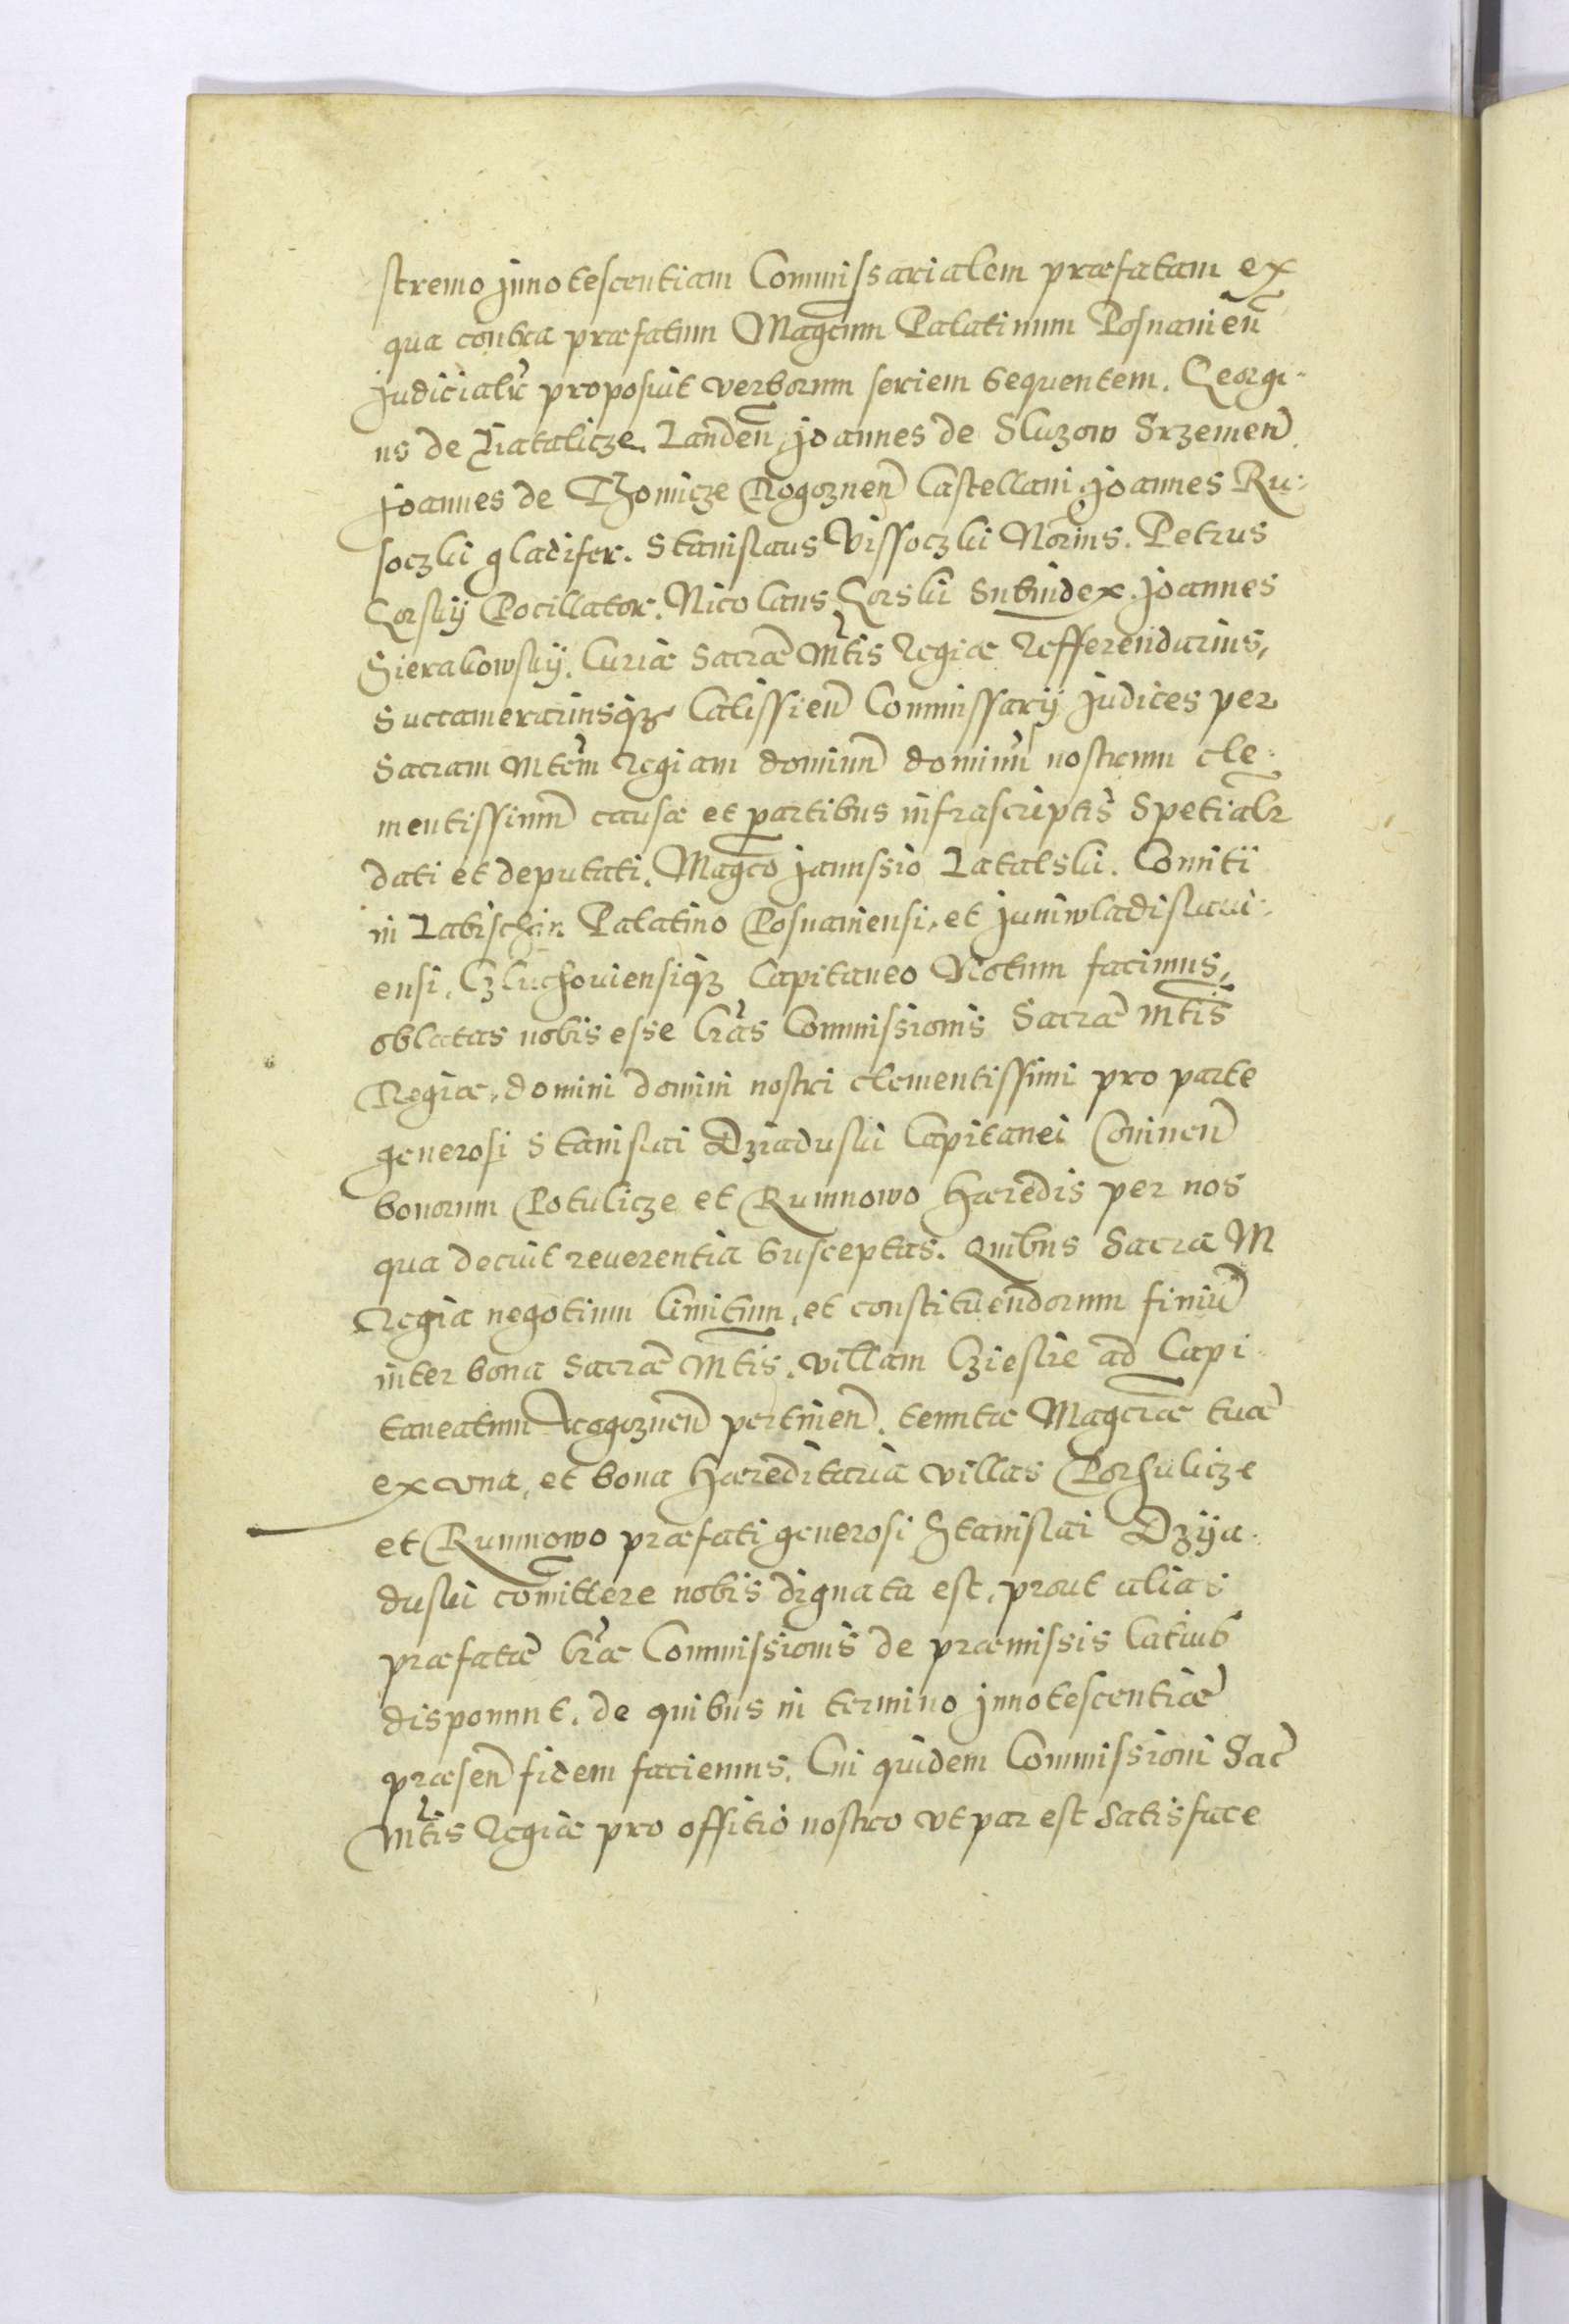 stremo innotescentiam Commissarialem præfatam ex
qua contra præfatum Magcum Palatinum Posnanien̄
Judicialr̃ proposuit verborum seriem sequentem. Georgi-
us de Latalicze Landen̄, Joannes de Sluzow Srzemen̄
Joannes de Thomicze Rogoznen̄ Castellani, Joannes Ru-
soczki gladifer. Stanislaus Vissoczki Norius. Petrus
Gorskÿ Pocillator. Nicolaus Gorski Subiudex. Joannes
Sierakowskÿ. Curiæ Sacræ Mt̃is Regiæ Refferendarius,
Succamerariusq̃ Calissien̄ Commissarÿ Judices per
Sacram Mtẽm Regiam dominū dominū nostrum cle-
mentissimū causæ et partibus infrascriptis Spetialr
dati et deputati. Magco Janussio Latalski. Comiti
in Labischin Palatino Posnaniensi, et Juniwladislaui-
ensi, Czluchouiensiq̃ Capitaneo Notum facimus,
oblatas nobis esse Lr̃as Commissionis Sacræ Mt̃is
Regiæ, domini domini nostri clementissimi pro parte
generosi Stanislai Dziaduski Capitanei Coninen̄
bonorum Potulicze et Rumnowo Hæredis per nos
qua decuit reuerentia susceptas. Quibus Sacra M
Regia negotium limitum, et constituendorum finiū
inter bona Sacræ Mt̃is, villam Cziesle ad Capi-
taneatum Rogoznen̄ pertinen̄. tenutæ Magciæ tuæ
ex vna, et bona Hæreditaria villas Pothulicze
et Rumnowo præfati generosi Stanislai Dzÿa-
duski comittere nobis dignata est, prout alias
præfatæ Lr̃æ Commissionis de præmissis latius
disponunt, de quibus in termino Innotescentiæ
præsen̄ fidem faciemus. Cui quidem Commissioni Sac̃
Mt̃is Regiæ pro offitio nostro vt par est satisface